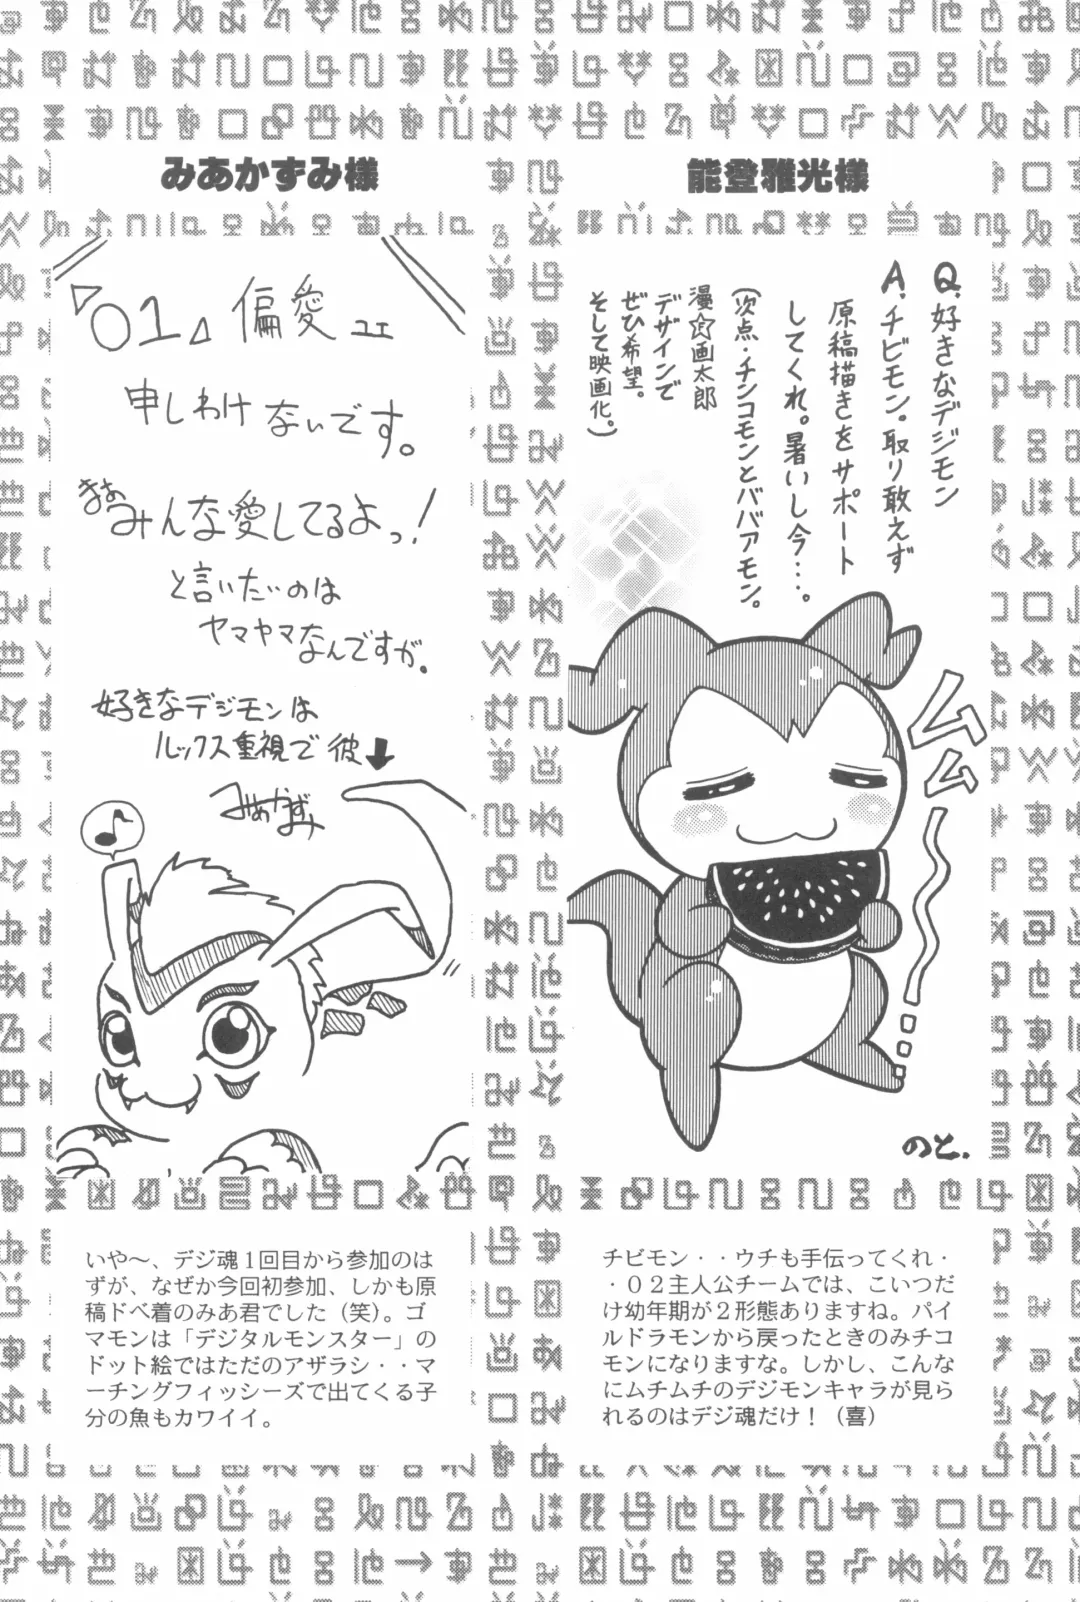 能登雅光様
Q.好きなデジモン
A.チビモン。取り敢えず
原稿描きをサポート
してくれ。暑いし今…。
(次点・チンコモンとババアモン。
漫☆画太郎
デザインで
ぜひ希望。
そして映画化。)
ムムー…
のと.
チビモン・・ウチも手伝ってくれ・
・０２主人公チームでは、こいつだ
け幼年期が２形態ありますね。パイ
ルドラモンから戻ったときのみチコ
モンになりますな。しかし、こんな
にムチムチのデジモンキャラが見ら
れるのはデジ魂だけ！（喜）
みあかずみ様
「01」偏愛ユエ
申しわけないです。
まぁみんな愛してるよっ!
と言いたいのは
ヤマヤマなんですが。
好きなデジモンは
ルックス重視で彼↓
みあかずみ
いや～、デジ魂１回目から参加のは
ずが、なぜか今回初参加、しかも原
稿ドベ着のみあ君でした（笑）。ゴ
マモンは「デジタルモンスター」の
ドット絵ではただのアザラシ・・マ
ーチングフィッシーズで出てくる子
分の魚もカワイイ。